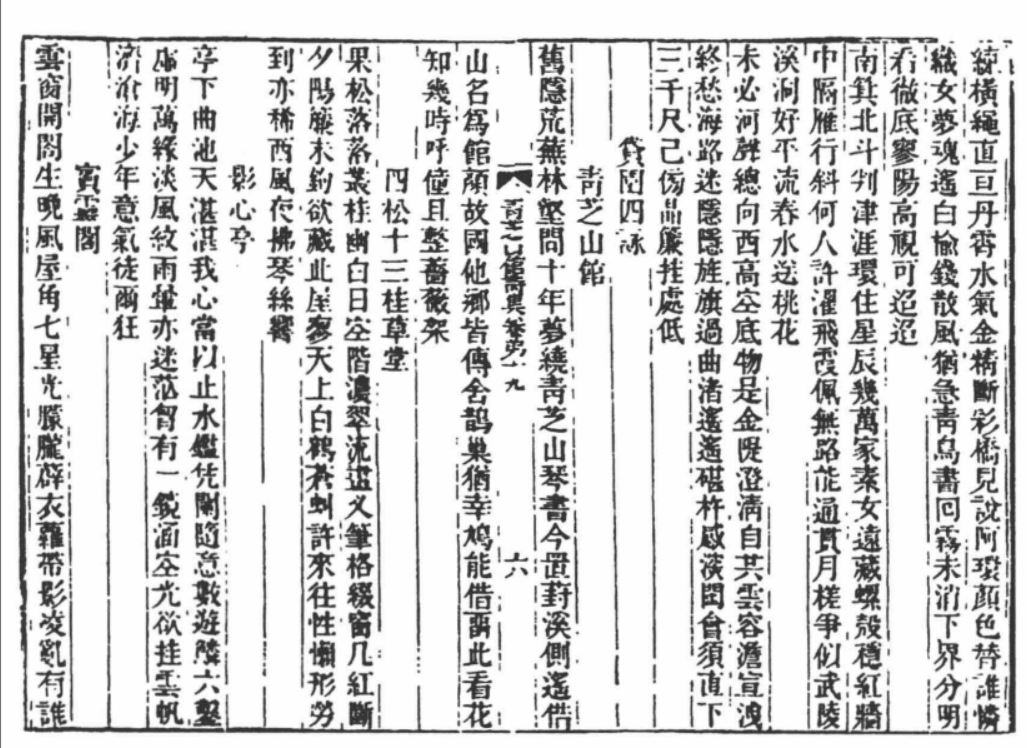 繞橫繩直亘丹霄水氣金精斷彩橋見說阿環顏色替誰憐
織女夢魂遙白榆錢散風猶急靑鳥書回霧未消下界分明
看徹底寥陽高視可迢迢
南箕北斗判津涯環住星辰幾萬家素女遠藏螺殼穩紅牆
中隔雁行斜何人許濯飛霞佩無路能通貫月槎爭似武陵
溪澗好平流春水送桃花
未必河聲總向西高空底物是金隄澄淸自共雲容澹宣洩
終愁海路迷隱隱旌旗過曲渚遙遙碪杵感深閨會須直下
三千尺已傍晶簾挂處低
貸園四詠
靑芝山館
舊隱荒蕪林壑問十年夢繞靑芝山琴書今置葑溪側遙借
山名爲館顏故國他鄉皆傳舍鵲巢猶幸鳩能借謂此看花
知幾時呼僮且整薔薇架
四松十三桂草堂
果松落落叢桂幽白日空階濃翠流道乂筆格綴窗几紅斷
夕陽簾未鉤欲藏此屋寥天上白鶴蒼虯許來往性懶形勞
到亦稀西風夜拂琴絲響
影心亭
亭下曲池天湛湛我心當以止水鑑凭闌隨意數遊鱗六鑿
虛明萬緣淡風紋雨暈亦迷茫曾有一鏡涵空光欲挂雲帆
濟滄海少年意氣徒爾狂
賓﻿閣
雲窗開閣生晚風屋角七星光朦朧薜衣蘿帶影凌亂有誰
靑芝山館詩集卷第十九
六